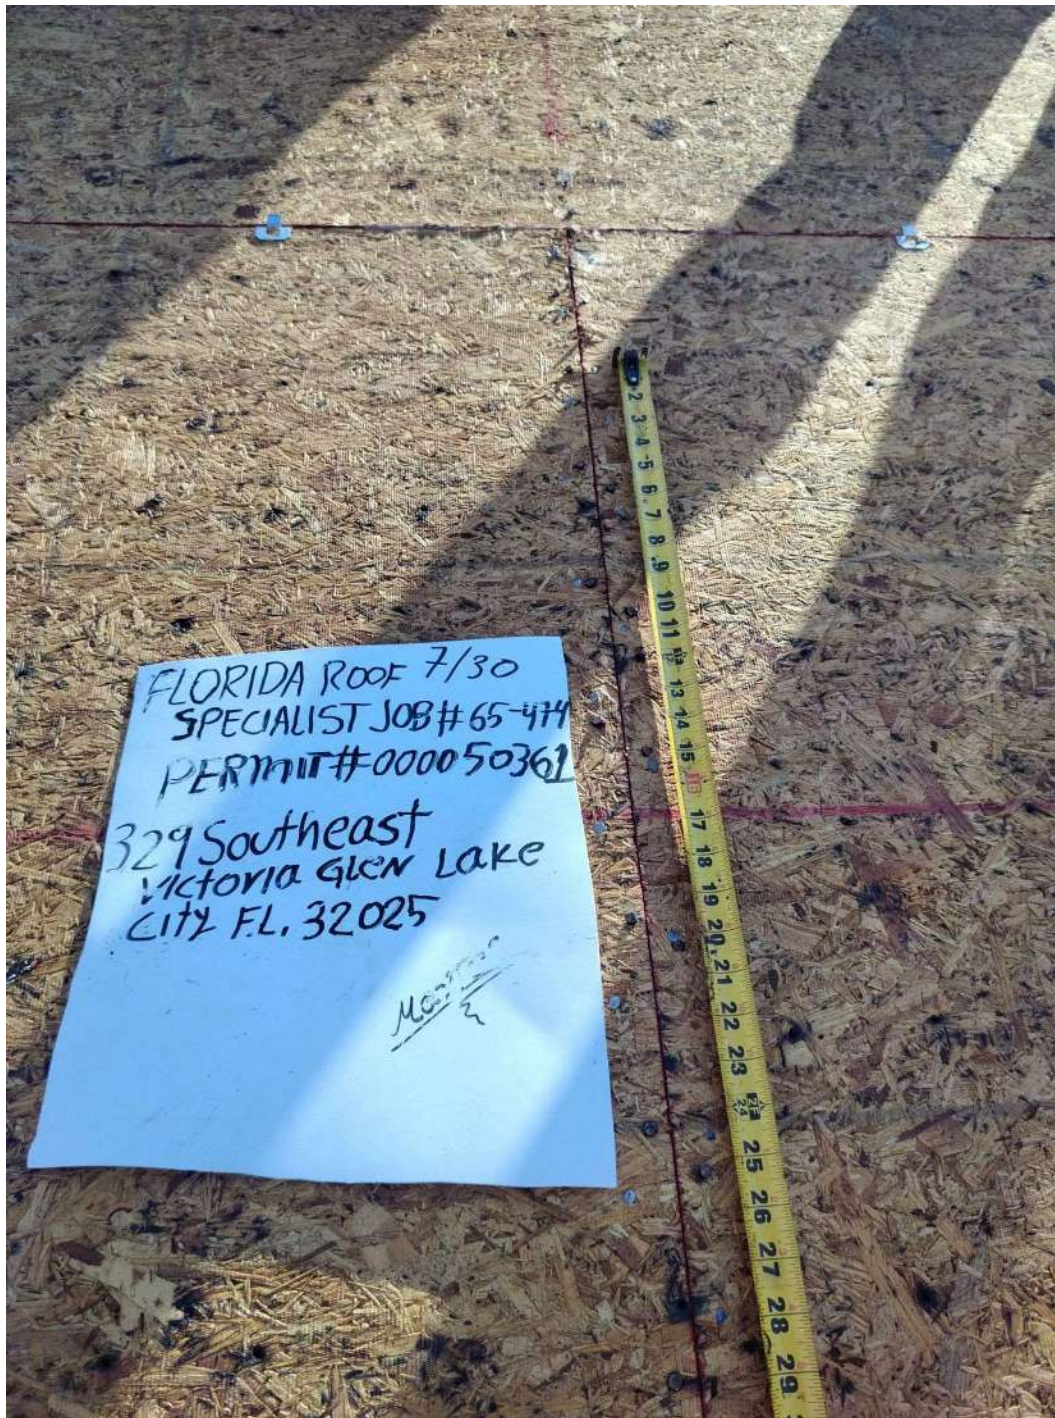 FLORIDA ROOF 7/30
SPECIALIST JOB # 65-474
PERMIT # 0000 50361
329 Southeast
Victoria GLEN Lake
CITY FL. 32025
2
3
4
5
6
7
8
9
10
11
13
14
15
16
17
18
19
20
21
22
23
24
25
26
27
28
29